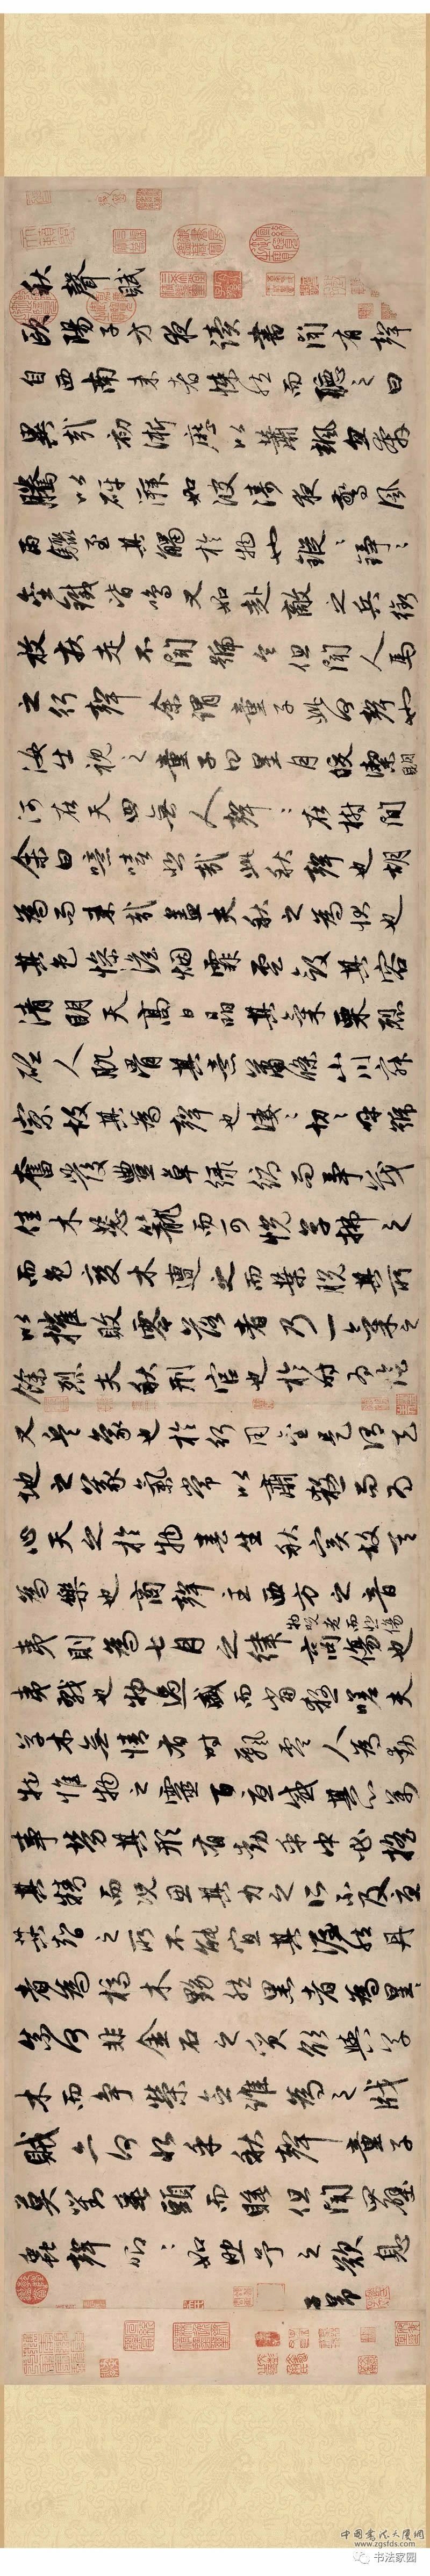 秋聲賦
歐陽子方夜讀書聞有聲
自西南来者悚然而聽之曰
異哉初淅瀝以蕭颯忽奔
騰以砰湃如波濤夜驚風
雨驟至其觸於物也鏦〻錚〻
金鐵皆鳴又如赴敵之兵銜
枚疾走不聞號令但聞人馬
之行聲余謂童子此何聲也
汝出視之童子曰星月皎潔明
河在天四無人聲〻在樹間
余曰噫嘻悲哉此秋聲也胡
為而来哉蓋夫秋之為狀也
其色慘澹烟霏雲斂其容
清明天高日晶其氣栗烈
砭人肌骨其意蕭條山川寂
寥故其為聲也淒〻切〻呼號
奮發豐草綠縟而爭茂
佳木葱籠而可悅草拂之
而色變木遭之而葉脫其所
以摧敗零落者乃一氣之
餘烈夫秋刑官也於時為陰
又兵象也於行用金是謂天
地之義氣常以肅殺而為
心天之於物春生秋實故其
為樂也商聲主西方之音
夷則為七月之律商傷也
物既老而悲傷
夷戮也物過盛而當殺嗟夫
草木無情有時飄零人為動
物惟物之靈百憂感其心萬
事勞其形有動乎中必搖
其精而況思其力之所不及憂
其智之所不能宜其渥然丹
者為槁木黟然黑者為星〻
奈何非金石之質欲與草
木而爭榮念誰為之戕
賊亦何恨乎秋聲童子
莫對垂頭而睡但聞四壁
蟲聲唧〻如助予之歎息
子昂
中国书法大厦网
www.zgsfds.com
书法家园